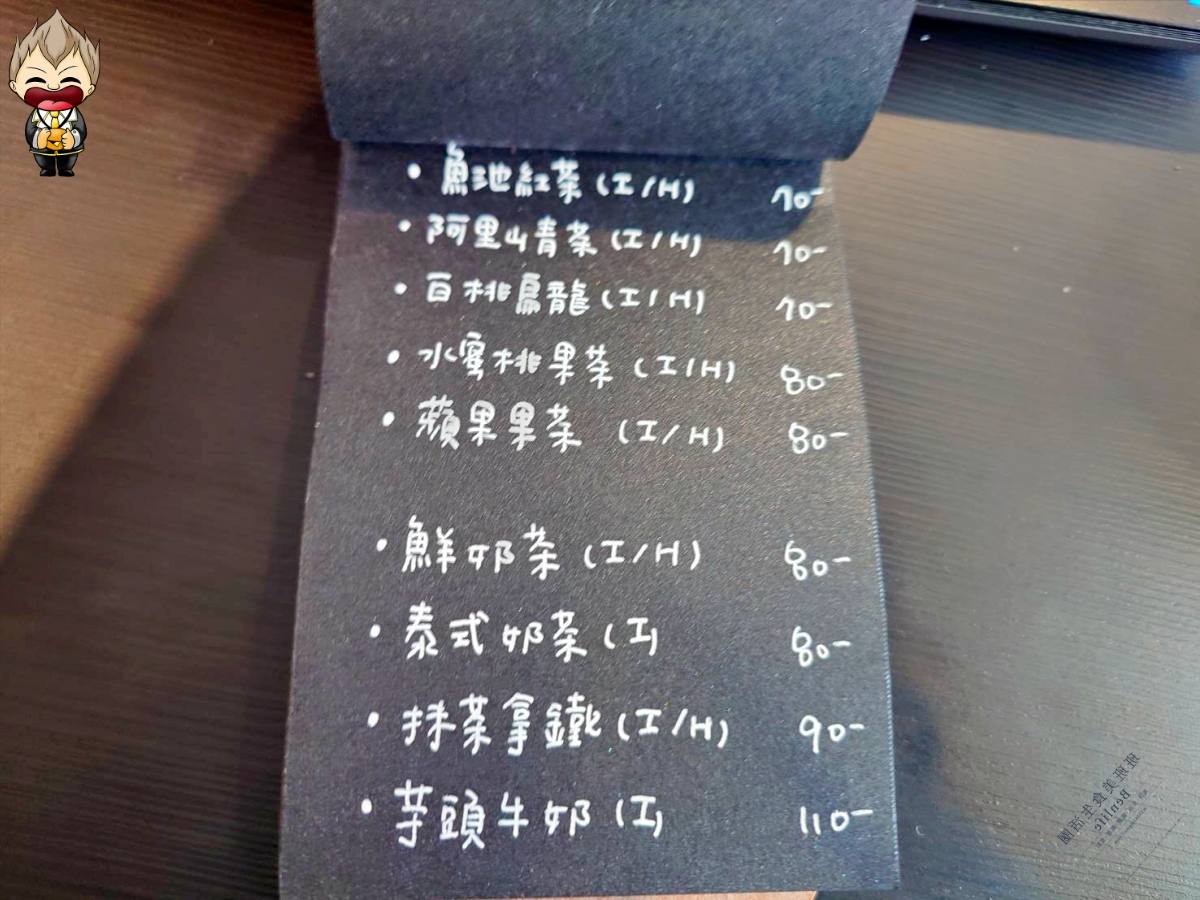 • 魚池紅茶 (I/H) 70-
• 阿里山青茶 (I/H) 70-
• 白桃烏龍 (I/H) 70-
• 水蜜桃果茶 (I/H) 80-
• 蘋果果茶 (I/H) 80-
• 鮮奶茶 (I/H) 80-
• 泰式奶茶 (I) 80-
• 抹茶拿鐵 (I/H) 90-
• 芋頭牛奶 (I) 110-
班班美食生活圈
Benlife